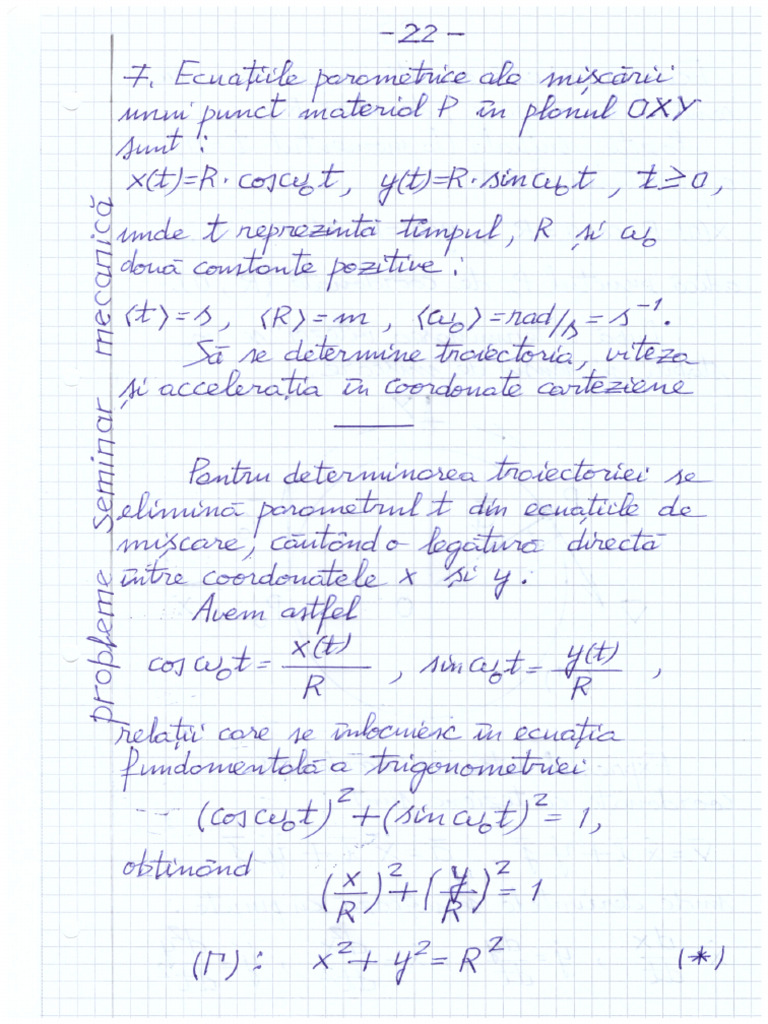 -22-
7. Ecuațiile parametrice ale mișcării
unui punct material P în planul OXY
sunt :
x(t)=R·cosω₀t, y(t)=R·sinω₀t, t≥0,
unde t reprezintă timpul, R și ω₀
două constante pozitive:
⟨t⟩=s, ⟨R⟩=m, ⟨ω₀⟩=rad/s=s⁻¹.
Să se determine traiectoria, viteza
și accelerația în coordonate carteziene
Pentru determinarea traiectoriei se
elimină parametrul t din ecuațiile de
mișcare, căutând o legătură directă
între coordonatele x și y.
Avem astfel
cosω₀t = x(t)/R , sinω₀t = y(t)/R ,
relații care se înlocuiesc în ecuația
fundamentală a trigonometriei
(cosω₀t)²+(sinω₀t)²=1,
obținând
(x/R)²+(y/R)²=1
(Γ): x²+y²=R² (*)
probleme Seminar mecanică